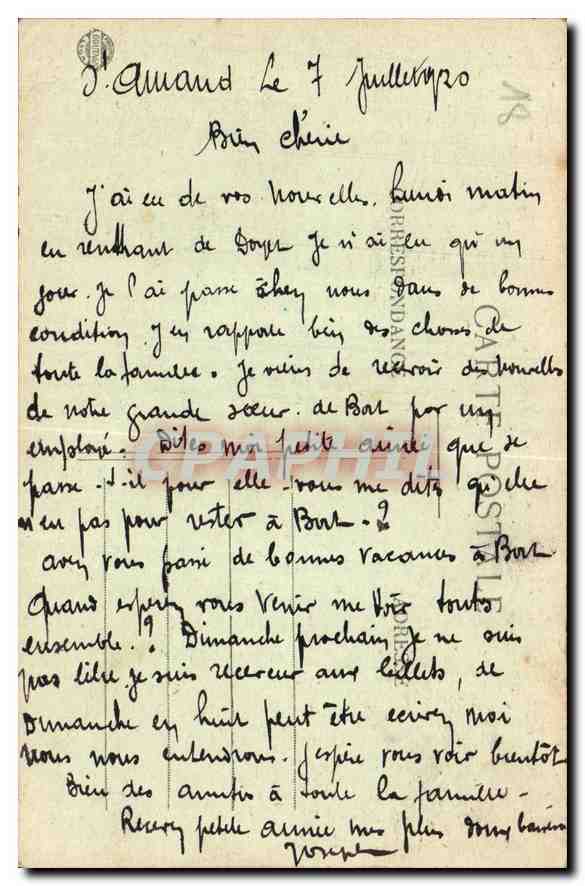 St Amand Le 7 Juillet 1920
18
Bien chérie
J'ai eu de vos nouvelles. Lundi matin
en rentrant de Doyet Je n'ai eu qu'un
jour. Je l'ai passe chez nous dans de bonnes
condition J'en rapporte bien des choses de
toute la famille. Je viens de recevoir des nouvelles
de notre grande sœur. de Bort par un
employé. Dites moi petite aimée que se
passe-t-il pour elle. vous me dites qu'elle
n'en pas pour rester à Bort.?
avez vous passé de bonnes vacances à Bort
Quand esperez vous venir me voir touts
ensemble.? Dimanche prochain je ne suis
pas libre je suis receveur aux billets, de
Dimanche en huit peut être ecrivez moi
nous nous entendrons. J'espère vous voir bientôt
Bien des amitiés à toute la famille -
Recevez petite aimée mes plus doux baisers
Joseph
CARTE POSTALE
CORRESPONDANCE
ADRESSE
CPAPHIL